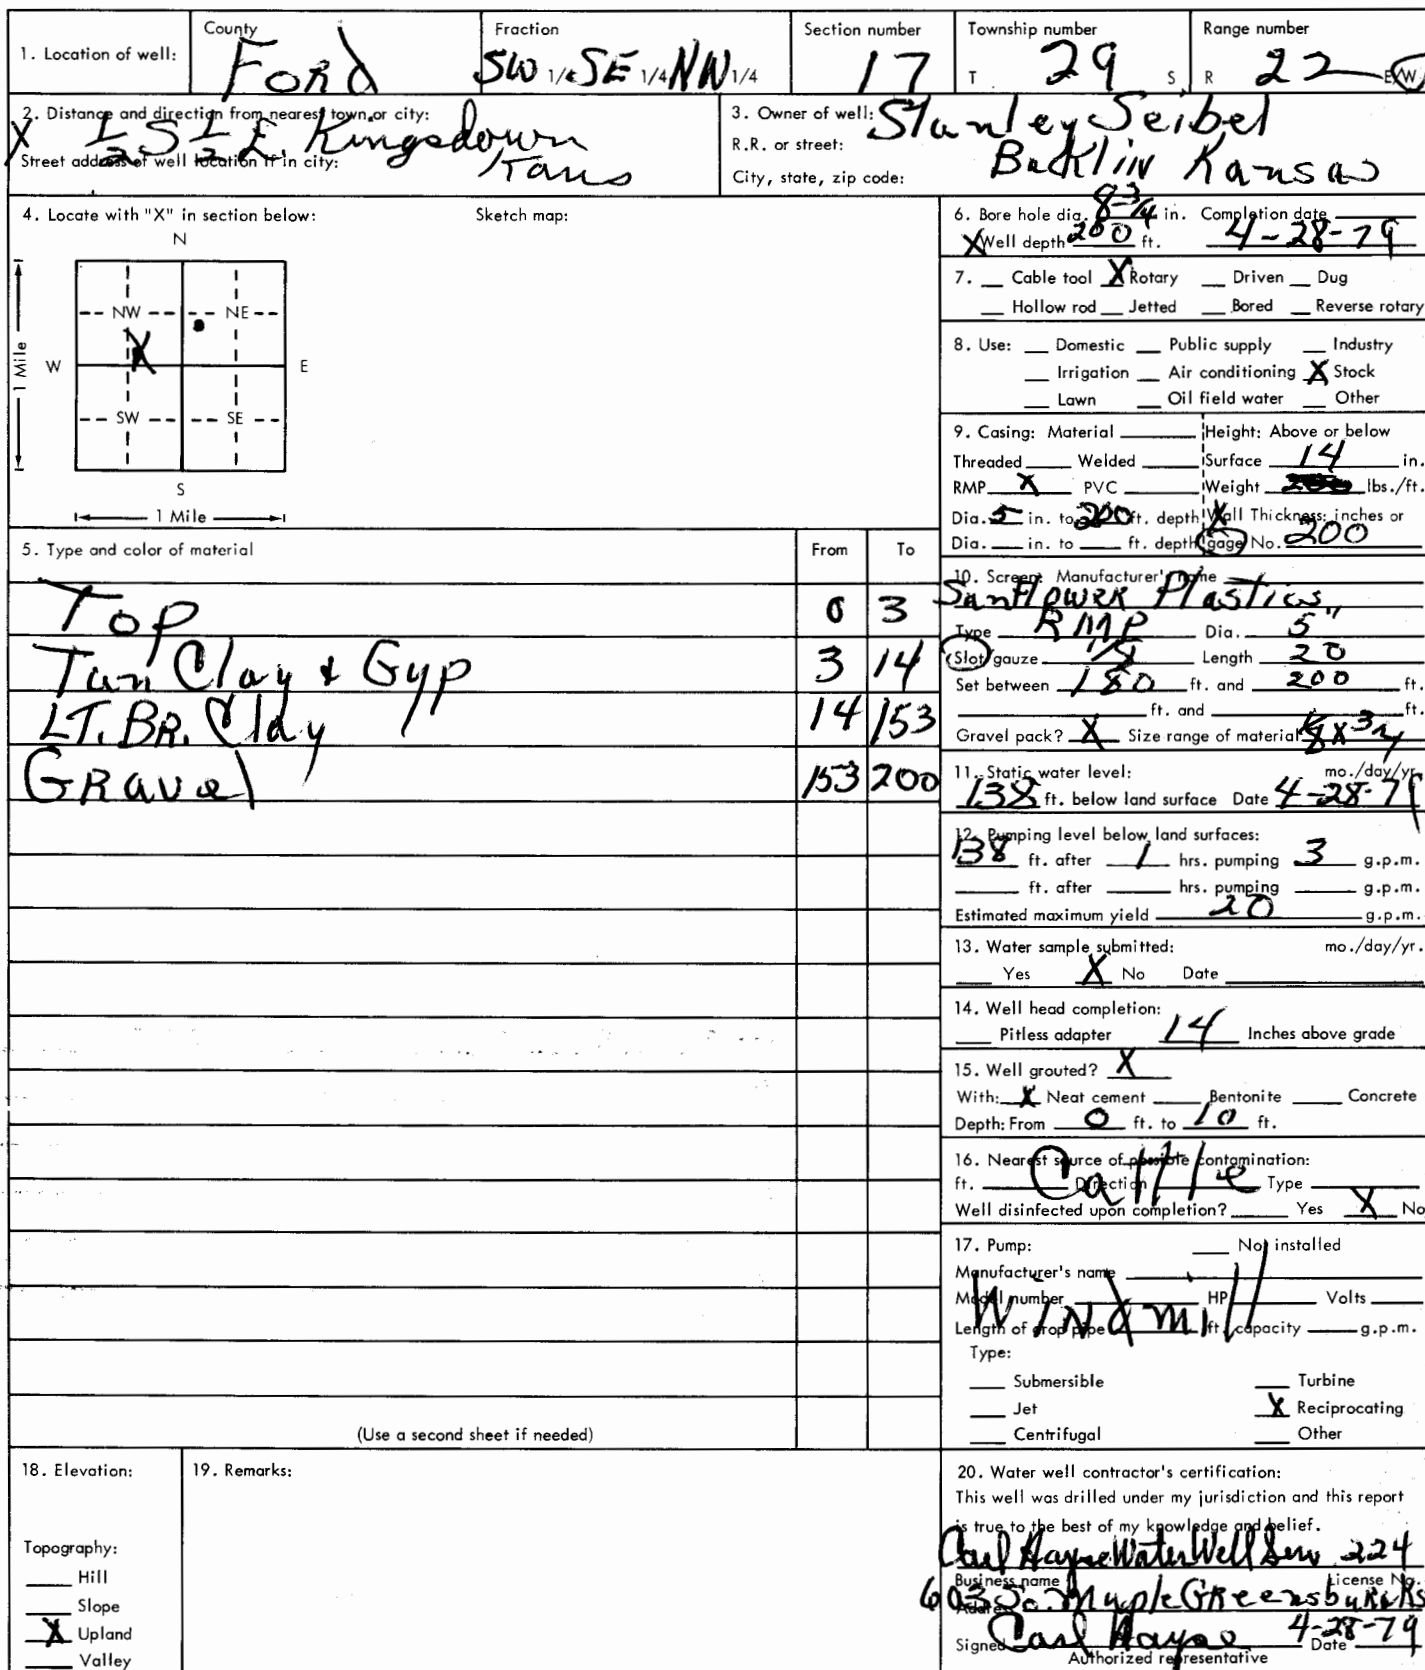 1. Location of well: County Ford Fraction SW 1/4 SE 1/4 NW 1/4 Section number 17 Township number T 29 S. Range number R 22 E/W
2. Distance and direction from nearest town or city: 1/2 S 1/2 E. Kingsdown Kans
Street address of well location if in city:
3. Owner of well: Stanley Seibel
R.R. or street:
City, state, zip code: Bucklin Kansas
4. Locate with "X" in section below: Sketch map:
N
NW NE
W E
SW SE
S
1 Mile
1 Mile
5. Type and color of material From To
Top 0 3
Tan Clay & Gyp 3 14
LT. BR. Clay 14 153
Gravel 153 200
(Use a second sheet if needed)
6. Bore hole dia. 8-3/4 in. Completion date
X Well depth 200 ft. 4-28-79
7. Cable tool X Rotary Driven Dug
Hollow rod Jetted Bored Reverse rotary
8. Use: Domestic Public supply Industry
Irrigation Air conditioning X Stock
Lawn Oil field water Other
9. Casing: Material Height: Above or below
Threaded Welded Surface 14 in.
RMP X PVC Weight lbs./ft.
Dia. 5 in. to 200 ft. depth Wall Thickness: inches or
Dia. in. to ft. depth gage No. 200
10. Screen: Manufacturer's name
Sunflower Plastics
Type RMP Dia. 5"
Slot/gauze Length 20
Set between 180 ft. and 200 ft.
ft. and ft.
Gravel pack? X Size range of material
11. Static water level: mo./day/yr.
138 ft. below land surface Date 4-28-79
12. Pumping level below land surfaces:
138 ft. after 1 hrs. pumping 3 g.p.m.
ft. after hrs. pumping g.p.m.
Estimated maximum yield 20 g.p.m.
13. Water sample submitted: mo./day/yr.
Yes X No Date
14. Well head completion:
Pitless adapter 14 Inches above grade
15. Well grouted? X
With: X Neat cement Bentonite Concrete
Depth: From 0 ft. to 10 ft.
16. Nearest source of possible contamination:
ft. Direction Cattle Type
Well disinfected upon completion? Yes X No
17. Pump: Not installed
Manufacturer's name
Model number HP Volts
Windmill
Length of drop pipe ft. capacity g.p.m.
Type:
Submersible Turbine
Jet X Reciprocating
Centrifugal Other
18. Elevation:
Topography:
Hill
Slope
X Upland
Valley
19. Remarks:
20. Water well contractor's certification:
This well was drilled under my jurisdiction and this report
is true to the best of my knowledge and belief.
Carl Hayse Water Well Serv 224
Business name License No.
603 So. Maple Greensburg Ks
Address
Signed Carl Hayse Date 4-28-79
Authorized representative